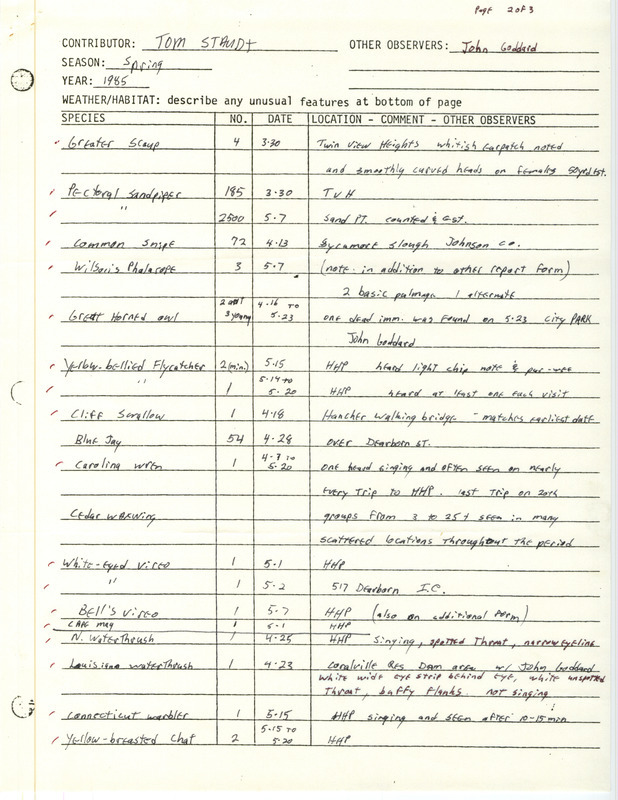 Page 2 of 3
CONTRIBUTOR: TOM STAUDT OTHER OBSERVERS: John Goddard
SEASON: Spring
YEAR: 1985
WEATHER/HABITAT: describe any unusual features at bottom of page
SPECIES NO. DATE LOCATION - COMMENT - OTHER OBSERVERS
Greater Scaup 4 3-30 Twin View Heights whitish earpatch noted
and smoothly curved heads on females 50yd est.
Pectoral Sandpiper 185 3-30 TVH
" 2500 5-7 Sand PT. counted & est.
Common Snipe 72 4-13 Sycamore Slough Johnson Co.
Wilson's Phalarope 3 5-7 (note: in addition to other report form)
2 basic pulmage 1 alternate
Great Horned Owl 2 adult 3 young 4-16 to 5-23 one dead imm. was found on 5-23 City PARK
John Goddard
Yellow-bellied Flycatcher 2 (min.) 5-15 HHP heard light chip note & pur-wee
" 1 5-14 to 5-20 HHP heard at least one each visit
Cliff Swallow 1 4-18 Hancher walking bridge - matches earliest date
Blue Jay 54 4-28 over Dearborn ST.
Carolina Wren 1 4-7 to 5-20 one heard singing and often seen on nearly
every trip to HHP. last trip on 20th
Cedar WAXwing groups from 3 to 25+ seen in many
scattered locations throughout the period
White-eyed Vireo 1 5-1 HHP
" 1 5-2 517 Dearborn I.C.
Bell's Vireo 1 5-7 HHP (also on additional form)
CAPE may 1 5-1 HHP
N. Waterthrush 1 4-25 HHP singing, spotted Throat, narrow eyeline
Louisiana Waterthrush 1 4-23 Coralville Res Dam area w/ John Goddard
white wide eye strip behind eye, white unspotted
Throat, buffy flanks. not singing
Connecticut Warbler 1 5-15 HHP singing and seen after 10-15 min
Yellow-breasted Chat 2 5-15 to 5-20 HHP